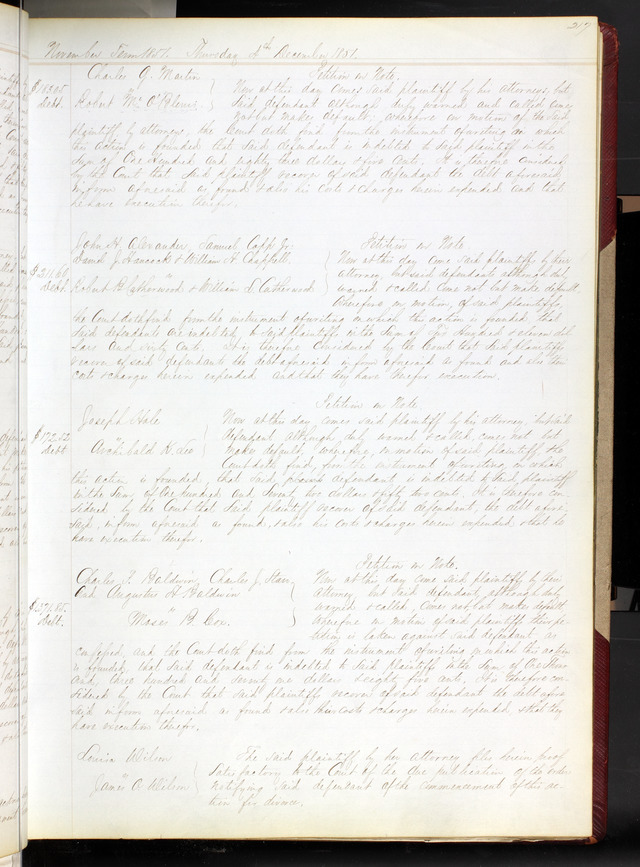 217
November Term 1851. Thursday 4th December 1851.
Charles G. Martin Petition on Note.
$183.05 Debt. Robert Mc O'Blenis. Now at this day comes said plaintiff by his attorney, but
said defendant although duly warned and called comes
not but makes default; wherefore on motion of the said
plaintiff by attorney, the Court doth find from the instrument of writing on which
this action is founded that said defendant is indebted to said plaintiff in the
sum of One Hundred and eighty three dollars & five cents. It is therefore considered
by the Court that said plaintiff recover of said defendant the debt aforesaid
in form aforesaid as found & also his costs & charges herein expended and that
he have execution therefor.
John H. Alexander, Samuel Copp Jr. Petition on Note
David J. Hancock & William H. Chappell Now at this day come said plaintiffs by their
$211.60 Debt attorney but said defendants although duly
Robert B. Catherwood & William L. Catherwood warned & called come not but make default
wherefore on motion of said plaintiffs
the Court doth find from the instrument of writing on which this action is founded that
said defendants are indebted to said plaintiffs in the sum of Two Hundred & eleven dol
lars and sixty cents. It is therefore considered by the Court that said plaintiffs
recover of said defendants the debt aforesaid in form aforesaid as found and also their
costs & charges herein expended and that they have therefor execution.
Petition on Note
Joseph Hale Now at this day comes said plaintiff by his attorney but said
$172.52 Debt defendant although duly warned & called, comes not but
Archibald K. Leo makes default, wherefore, on motion of said plaintiff, the
Court doth find, from the instrument of writing, on which
this action is founded, that said defendant is indebted to said plaintiff
in the sum, of One hundred and Seventy two dollars & fifty two cents. It is therefore con-
sidered by the Court that said plaintiff recover of said defendant, the debt afore-
said in form aforesaid as found, & also his costs & charges herein expended & that he
have execution therefor.
Petition on Note.
Charles F. Baldwin, Charles J. Starr, Now at this day come said plaintiffs by their
and Augustus H. Baldwin attorney, but said defendant, although duly
$1371.85 Debt. warned & called, comes not but makes default
Moses B. Cox. wherefore on motion of said plaintiffs their pe-
tition is taken against said defendant as
confessed, and the Court doth find from the instrument of writing on which this action
is founded, that said defendant is indebted to said plaintiffs in the sum of One thous
and, three hundred and seventy one dollars & eighty five cents. It is therefore con-
sidered by the Court that said plaintiffs recover of said defendant the debt afore
said in form aforesaid as found & also their costs & charges herein expended, & that they
have execution therefor.
Louisa Wilson The said plaintiff by her attorney files herein proof
satisfactory to the Court of the due publication of the order
James A. Wilson notifying said defendant of the commencement of this ac-
tion for divorce.